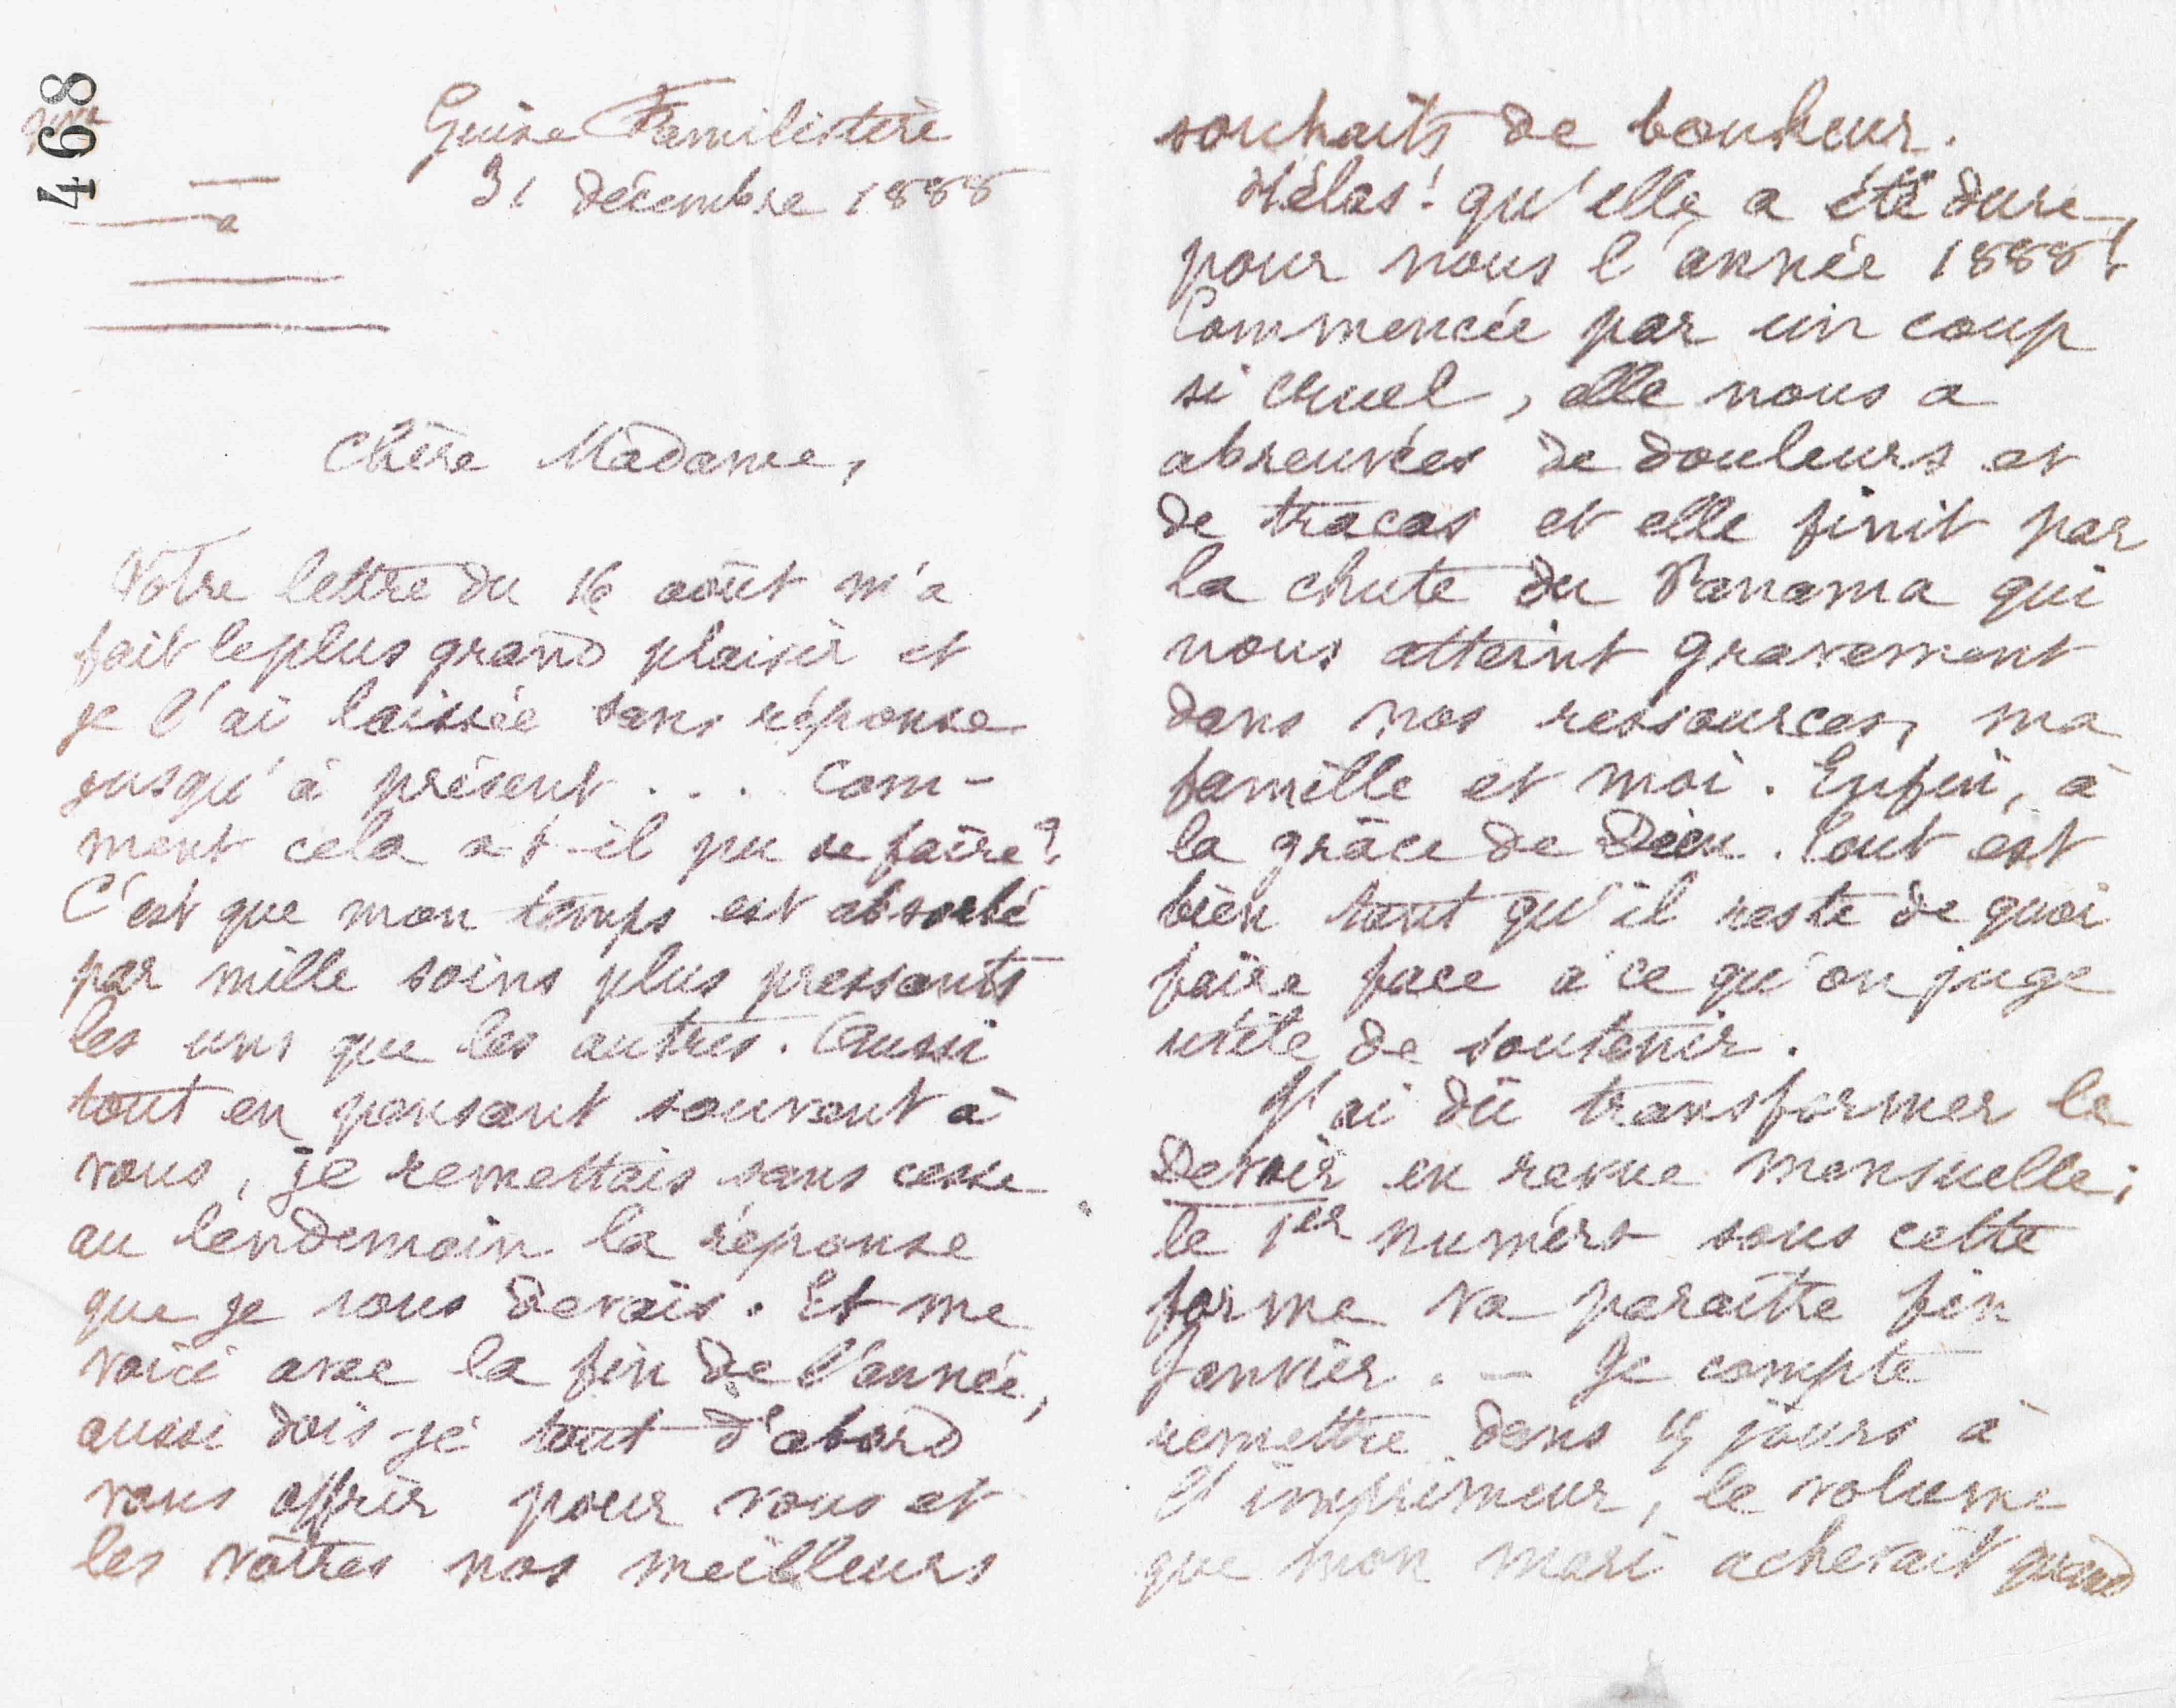 468
Guise Familistère
31 décembre 1888
a
Chère Madame,
Votre lettre du 16 août m'a
fait le plus grand plaisir et
je l'ai laissée sans réponse
jusqu'à présent . . . . Com-
ment cela a-t-il pu se faire ?
C'est que mon temps est absorbé
par mille soins plus pressants
les uns que les autres. Aussi
tout en pensant souvent à
vous, je remettais sans cesse
au lendemain la réponse
que je vous devais. Et me
voici avec la fin de l'année,
aussi dois-je tout d'abord
vous offrir pour vous et
les vôtres nos meilleurs
souhaits de bonheur.
Hélas ! qu'elle a été dure
pour nous l'année 1888 !
Commencée par un coup
si cruel, elle nous a
abreuvées de douleurs et
de tracas et elle finit par
la chute du Panama qui
nous atteint gravement
dans nos ressources, ma
famille et moi. Enfin, à
la grâce de Dieu. Tout est
bien tant qu'il reste de quoi
faire face à ce qu'on juge
utile de soutenir.
J'ai dû transformer le
Devoir en revue mensuelle ;
le 1er numéro sous cette
forme va paraître fin
Janvier. — Je compte
remettre dans 15 jours à
l'imprimeur, le volume
que mon mari achevait quand